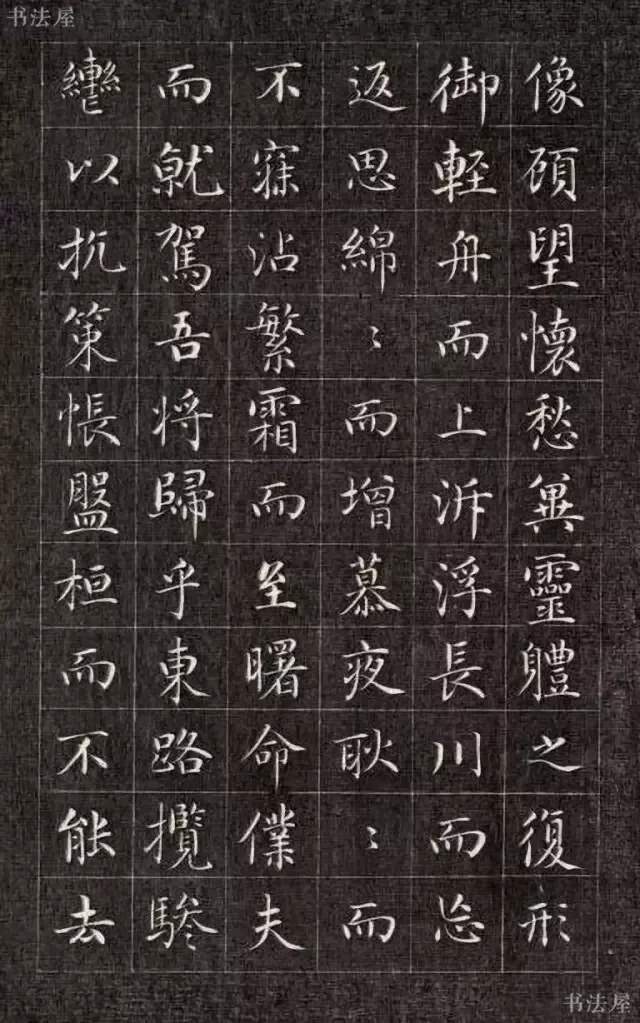 书法屋
像顾望懷愁兾靈體之復形
御輕舟而上泝浮長川而忘
返思綿〻而增慕夜耿〻而
不寐沾繁霜而至曙命僕夫
而就駕吾将歸乎東路攬騑
轡以抗策悵盤桓而不能去
书法屋